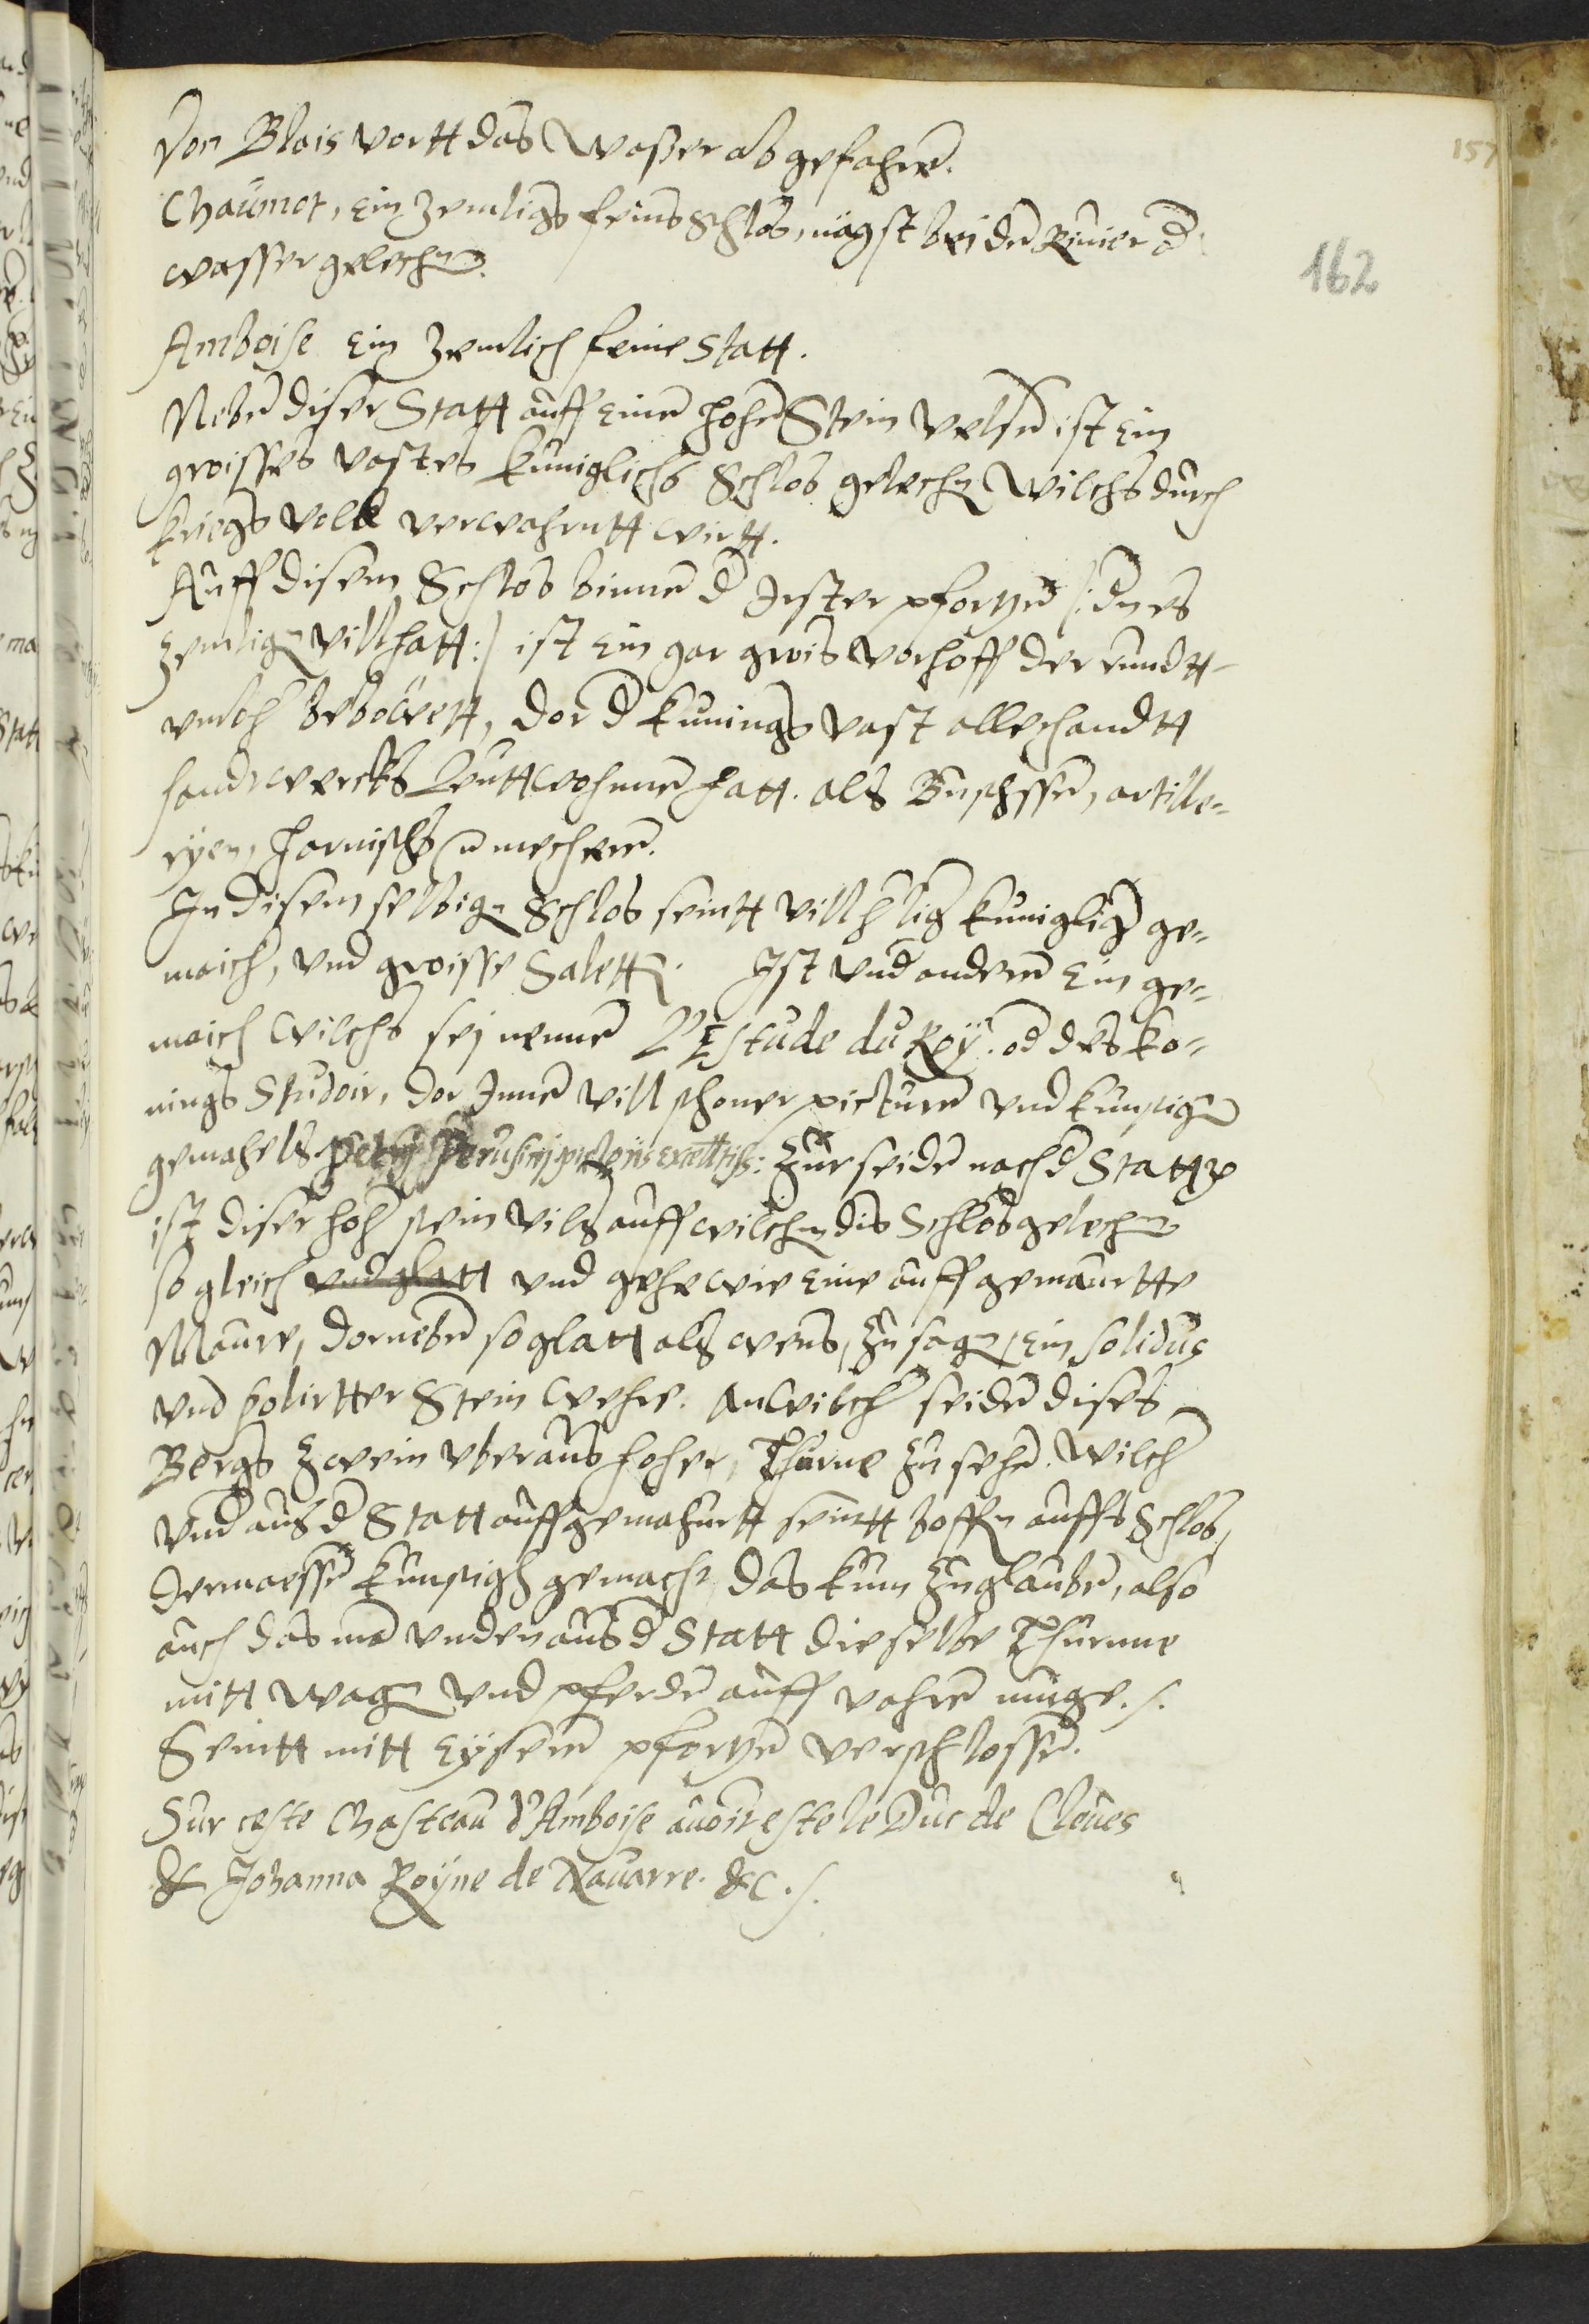 157
162
Von Blois vortt das Wasser abgefahren.
Chaumot, Ein zemligs feins Schlos, nägst bei der Riuier d
wasser gelechen.
Amboise Ein zemlich feine Statt.
Neben diser Statt auff Einen hohen Stein velsen ist Ein
groisses vastes Kuniglichs Schlos gelechen Wilchs durch
kriegs volck verwahrntt wirtt.
Auff disem Schlos binnen d Irster pfortzen /: dn es
zemligen vill hatt :/ ist Ein gar grois vorhoff der rundtt
umbh bebowett, dar d Kunings vast allerhandtt
handwercks Leutt wohnen hatt. als Buschssen, artille-
ryen, Harnischs mecheren.
In disem selbigen Schlos seintt vill hlig kuniglig ge-
maich, und groisse Saletten. Ist und anderen Ein ge-
maich Wilchs sej nennen L'Estude du Roÿ. od des Ko-
nings Studoir, dar Innen vill schoner picturen und kunstigen
gemahels Petrij Perusinj pictoris excelltiss: Zur seiden nach d Statt
ist diser hoh stein vils auff wilchen dis Schlos gelechen
so gleich und glatt und gehe wie Eine auffgemaurtte
Maure, darneben so glatt als wens, zu sagen, Ein solidus
und polirtter Stein wehre. An Wilch seiden dises
Bergs zwein uberaus hoher, Thurne zu sehen. Wilch
und aus d Statt auffgemahurtt seintt boffen auffs Schlos,
dermaessen kunstigh gemacht, das kum zu glauben, also
auch das man unden aus d Statt dieselbe Thurnne
mitt wagen und pferden auff vahren muge./.
Seintt mitt Eyseren pfortzen verschlossen.
Sur ceste Chasteau d'Amboise auoit este le Duc de Cleues
& Johanna Royne de Nauarre. &c./.